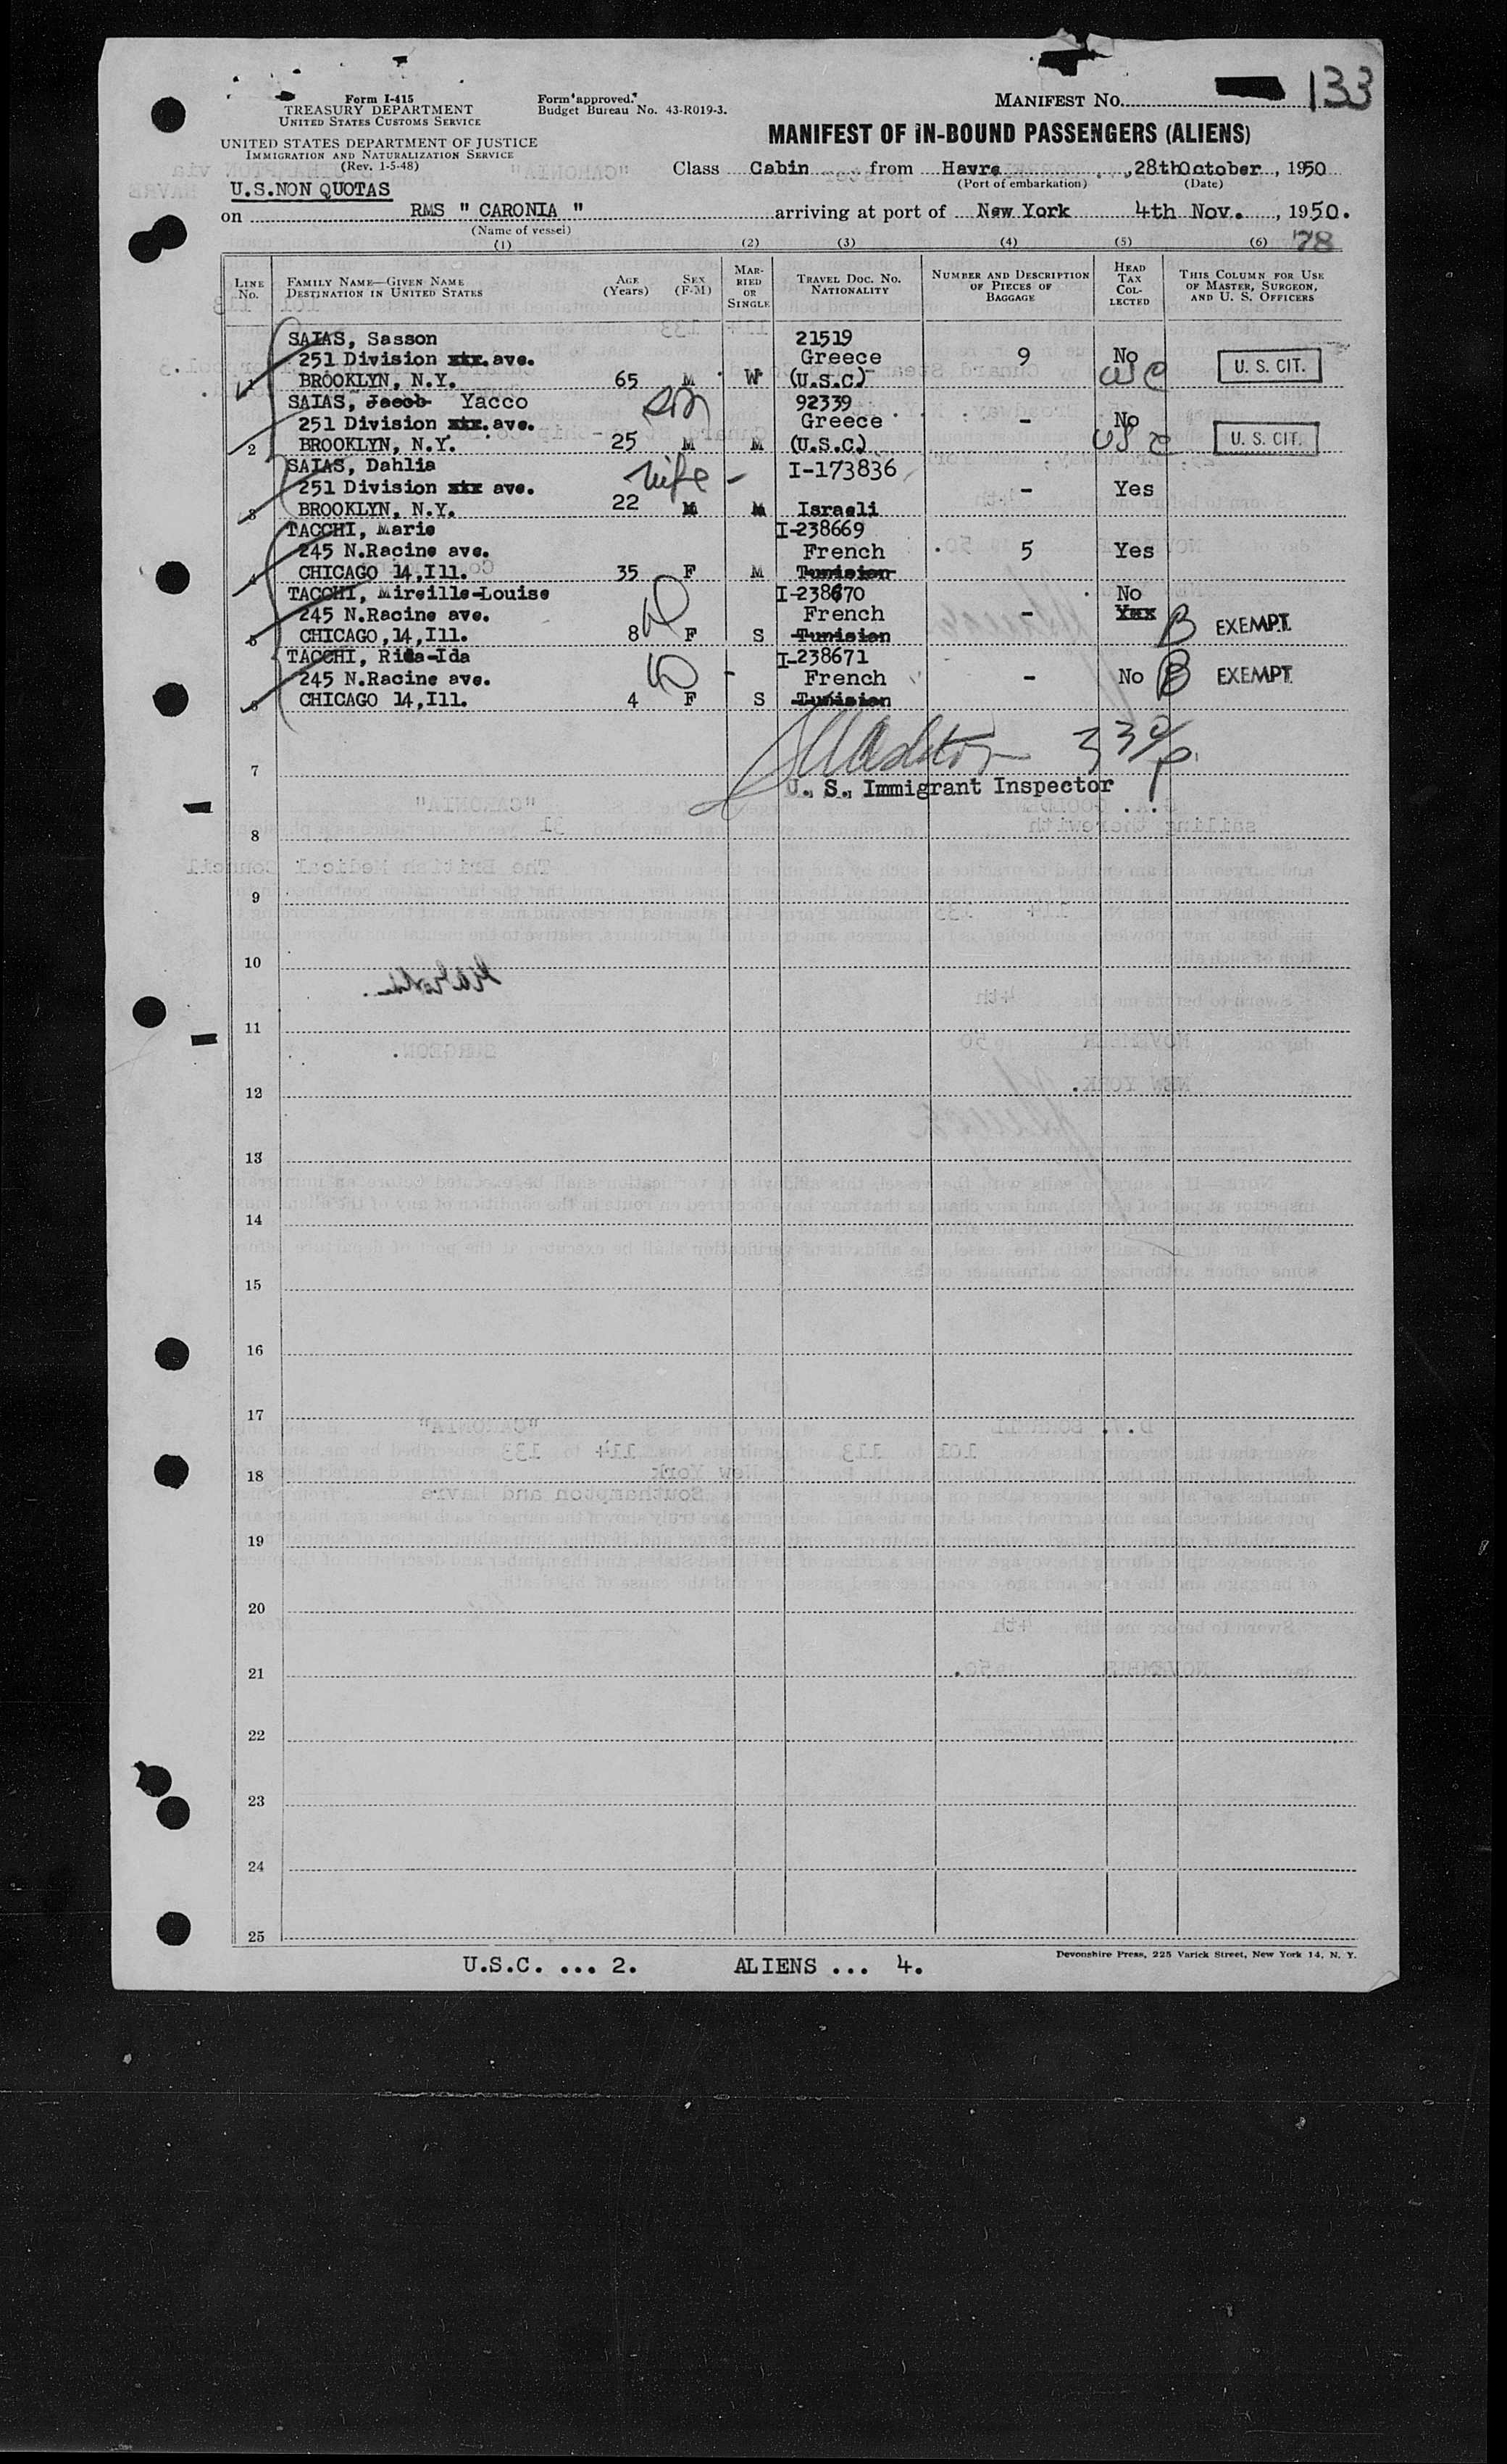 133
Form I-415
TREASURY DEPARTMENT
UNITED STATES CUSTOMS SERVICE
Form approved.
Budget Bureau No. 43-R019-3.
MANIFEST NO.
UNITED STATES DEPARTMENT OF JUSTICE
IMMIGRATION AND NATURALIZATION SERVICE
(Rev. 1-5-48)
MANIFEST OF IN-BOUND PASSENGERS (ALIENS)
U.S.NON QUOTAS
Class Cabin from Havre, 28thOctober, 1950
(Port of embarkation) (Date)
on RMS " CARONIA " arriving at port of New York 4th Nov., 1950.
(Name of vessel)
(1) (2) (3) (4) (5) (6) 78
LINE No. FAMILY NAME—GIVEN NAME DESTINATION IN UNITED STATES AGE (Years) SEX (F-M) MARRIED OR SINGLE TRAVEL DOC. NO. NATIONALITY NUMBER AND DESCRIPTION OF PIECES OF BAGGAGE HEAD TAX COLLECTED THIS COLUMN FOR USE OF MASTER, SURGEON, AND U. S. OFFICERS
SAIAS, Sasson 21519
251 Division xtx.ave. Greece 9 No U. S. CIT.
1 BROOKLYN, N.Y. 65 M W (U.S.C.) USC
SAIAS, Jacob Yacco son 92339
251 Division xtx.ave. Greece - No
2 BROOKLYN, N.Y. 25 M M (U.S.C.) USC U. S. CIT.
SAIAS, Dahlia wife - I-173836
251 Division xtx ave. - Yes
3 BROOKLYN, N.Y. 22 M M Israeli
TACCHI, Marie I-238669
245 N.Racine ave. French 5 Yes
4 CHICAGO 14,Ill. 35 F M Tunisian
TACCHI, Mireille-Louise I-238670 No
245 N.Racine ave. French - Yes B EXEMPT.
5 CHICAGO,14,Ill. 8 F S Tunisian
TACCHI, Rita-Ida I-238671
245 N.Racine ave. French - No B EXEMPT.
6 CHICAGO 14,Ill. 4 F S Tunisian
7
U. S. Immigrant Inspector
8
9
10
11
12
13
14
15
16
17
18
19
20
21
22
23
24
25
Devonshire Press, 225 Varick Street, New York 14, N. Y.
U.S.C. ... 2. ALIENS ... 4.